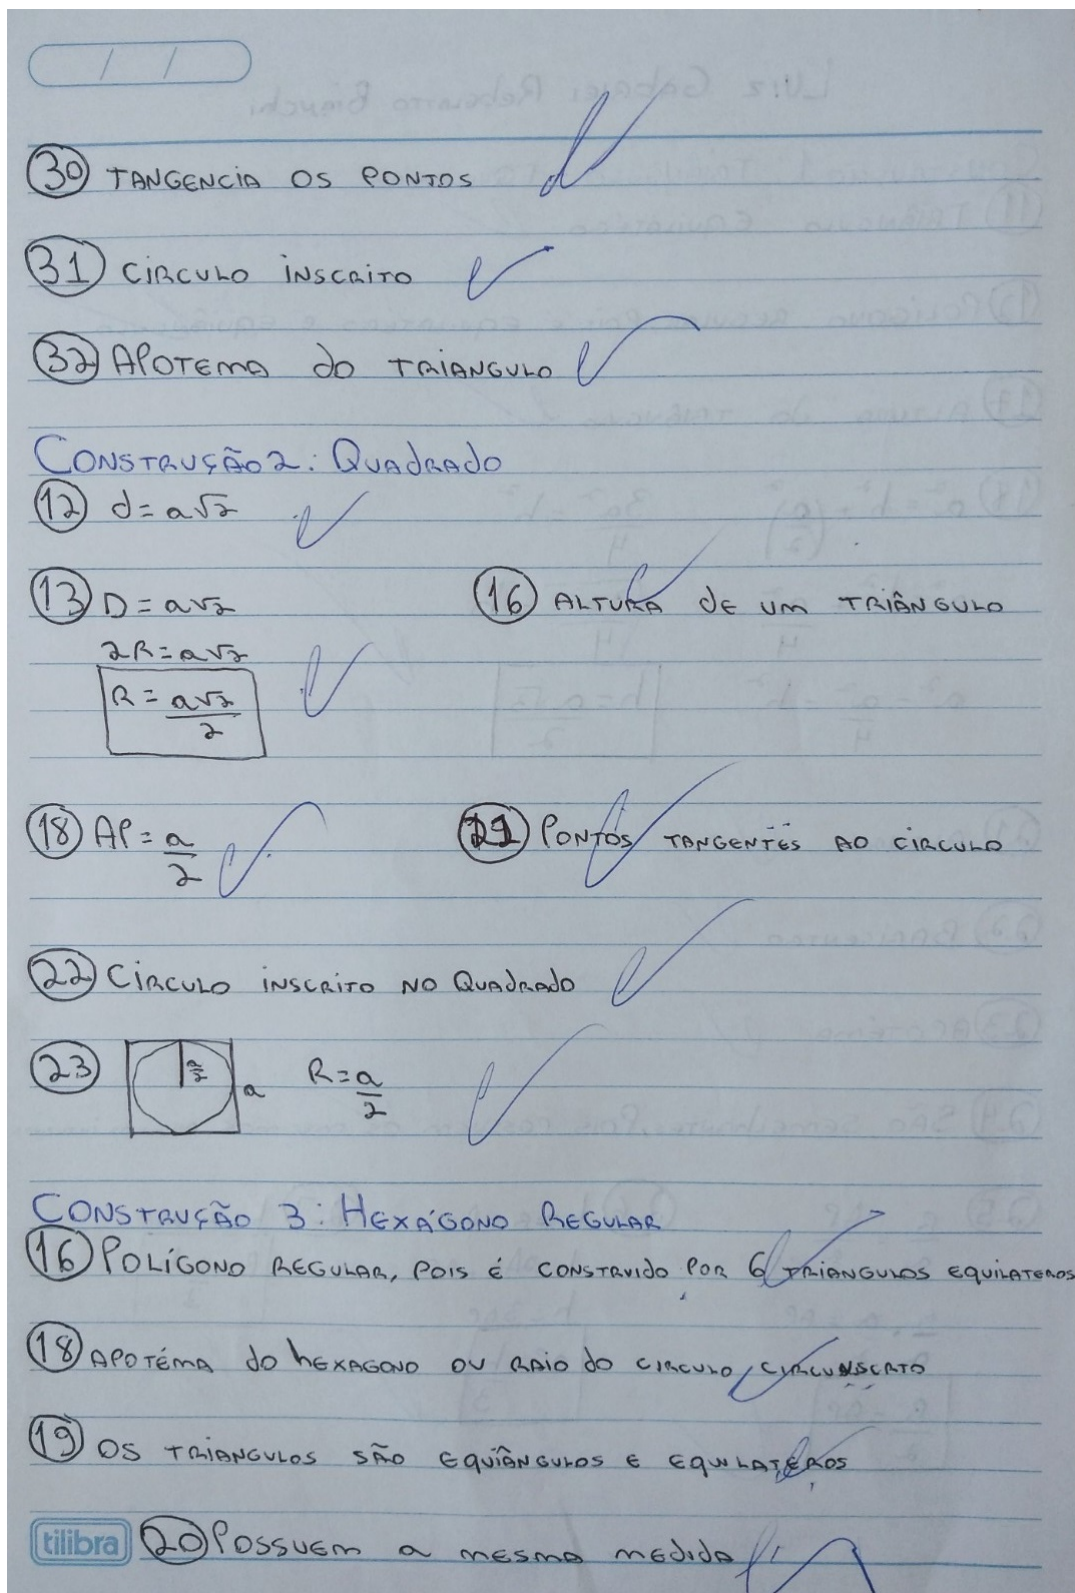 / /
30 TANGENCIA OS PONTOS
31 CIRCULO INSCRITO
32 APOTEMA do TRIANGULO
CONSTRUÇÃO 2: QUADRADO
12 d = a√2
13 D = a√2
2R = a√2
R = a√2/2
16 ALTURA DE UM TRIÂNGULO
18 AP = a/2
21 PONTOS TANGENTES AO CIRCULO
22 CIRCULO INSCRITO NO QUADRADO
23 a/2 a R = a/2
CONSTRUÇÃO 3: HEXÁGONO REGULAR
16 POLÍGONO REGULAR, POIS É CONSTRUIDO POR 6 TRIANGULOS EQUILATEROS
18 APOTÉMA do hEXAGONO OU RAIO do CIRCULO CIRCUNSCRTO
19 OS TRIANGULOS SÃO EQUIÂNGULOS E EQUILATEROS
tilibra 20 POSSUEM a mesma medida